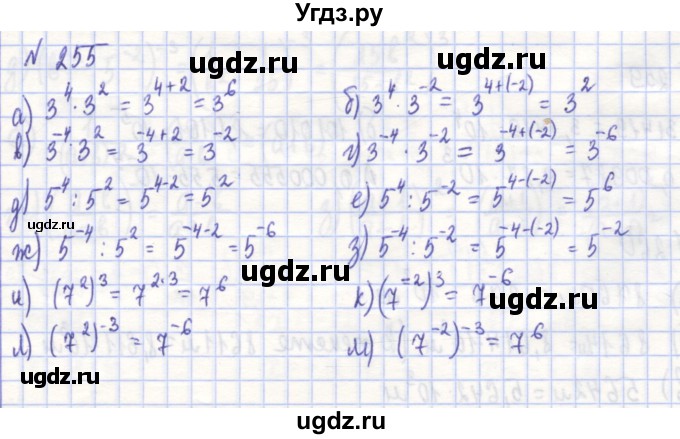 Угдз.ру
N 255
ugdz.ru ugdz.ru
а) 3⁴ · 3² = 3⁴⁺² = 3⁶ б) 3⁴ · 3⁻² = 3⁴⁺⁽⁻²⁾ = 3²
в) 3⁻⁴ · 3² = 3⁻⁴⁺² = 3⁻² г) 3⁻⁴ · 3⁻² = 3⁻⁴⁺⁽⁻²⁾ = 3⁻⁶
ugdz.ru
д) 5⁴ : 5² = 5⁴⁻² = 5² е) 5⁴ : 5⁻² = 5⁴⁻⁽⁻²⁾ = 5⁶
ugdz.ru
ж) 5⁻⁴ : 5² = 5⁻⁴⁻² = 5⁻⁶ з) 5⁻⁴ : 5⁻² = 5⁻⁴⁻⁽⁻²⁾ = 5⁻²
ugdz.ru ugdz.ru
и) (7²)³ = 7²·³ = 7⁶ к) (7⁻²)³ = 7⁻⁶
л) (7²)⁻³ = 7⁻⁶ м) (7⁻²)⁻³ = 7⁶
ugdz.ru ugdz.ru
ugdz.ru